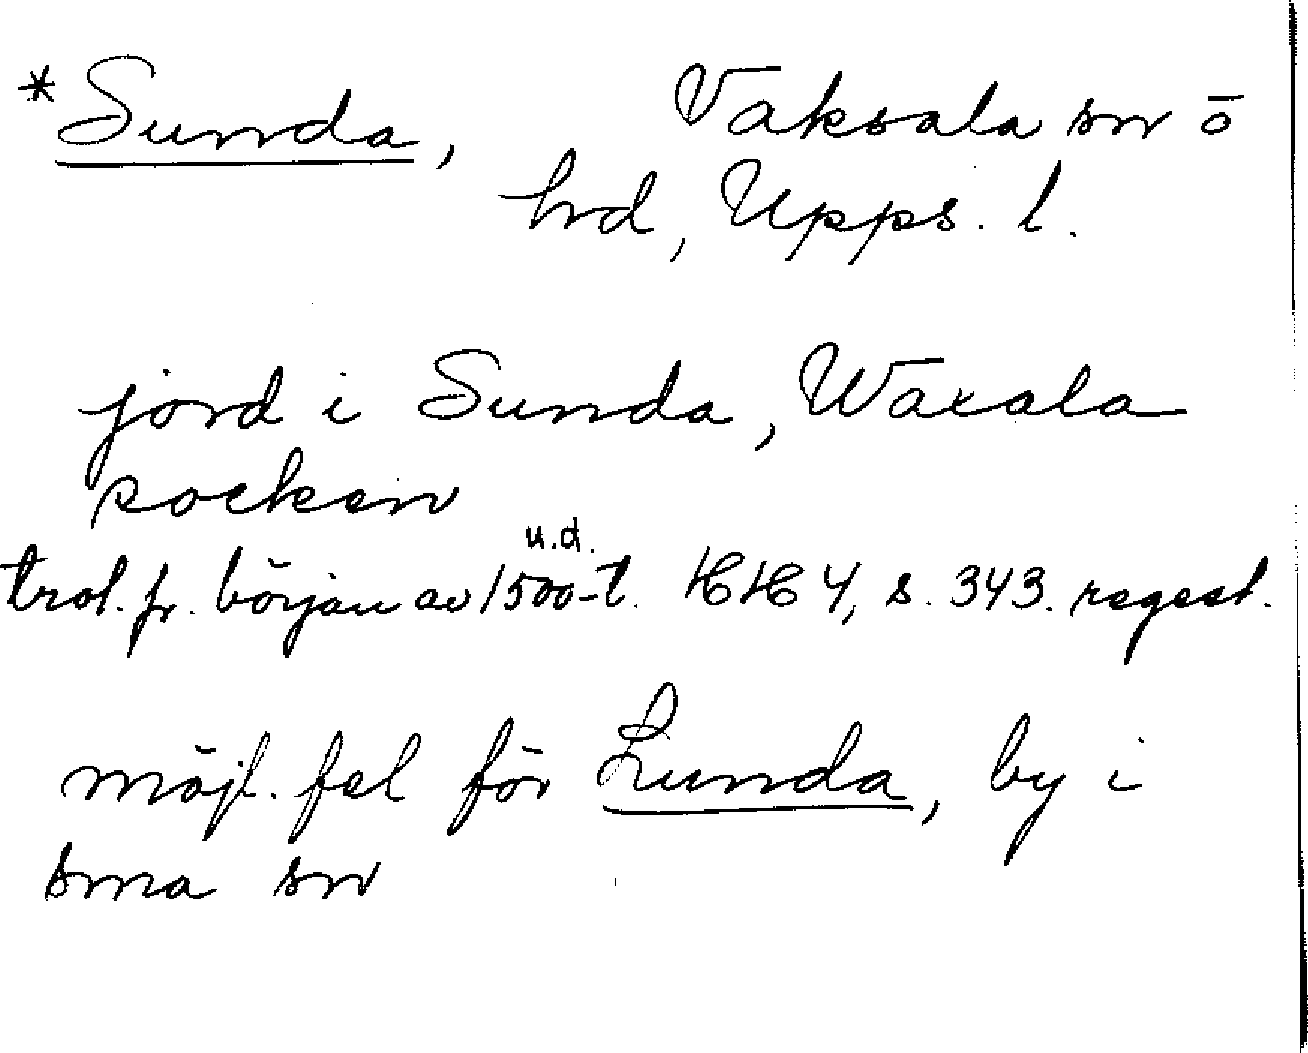 *Sunda, Vaksala sn ö
hd, Upps. l.
jord i Sunda, Waxala
socken
u.d.
trol. fr. början av 1500-t. HH 4, s. 343. regest.
möjl. fel för Lunda, by i
sma sn